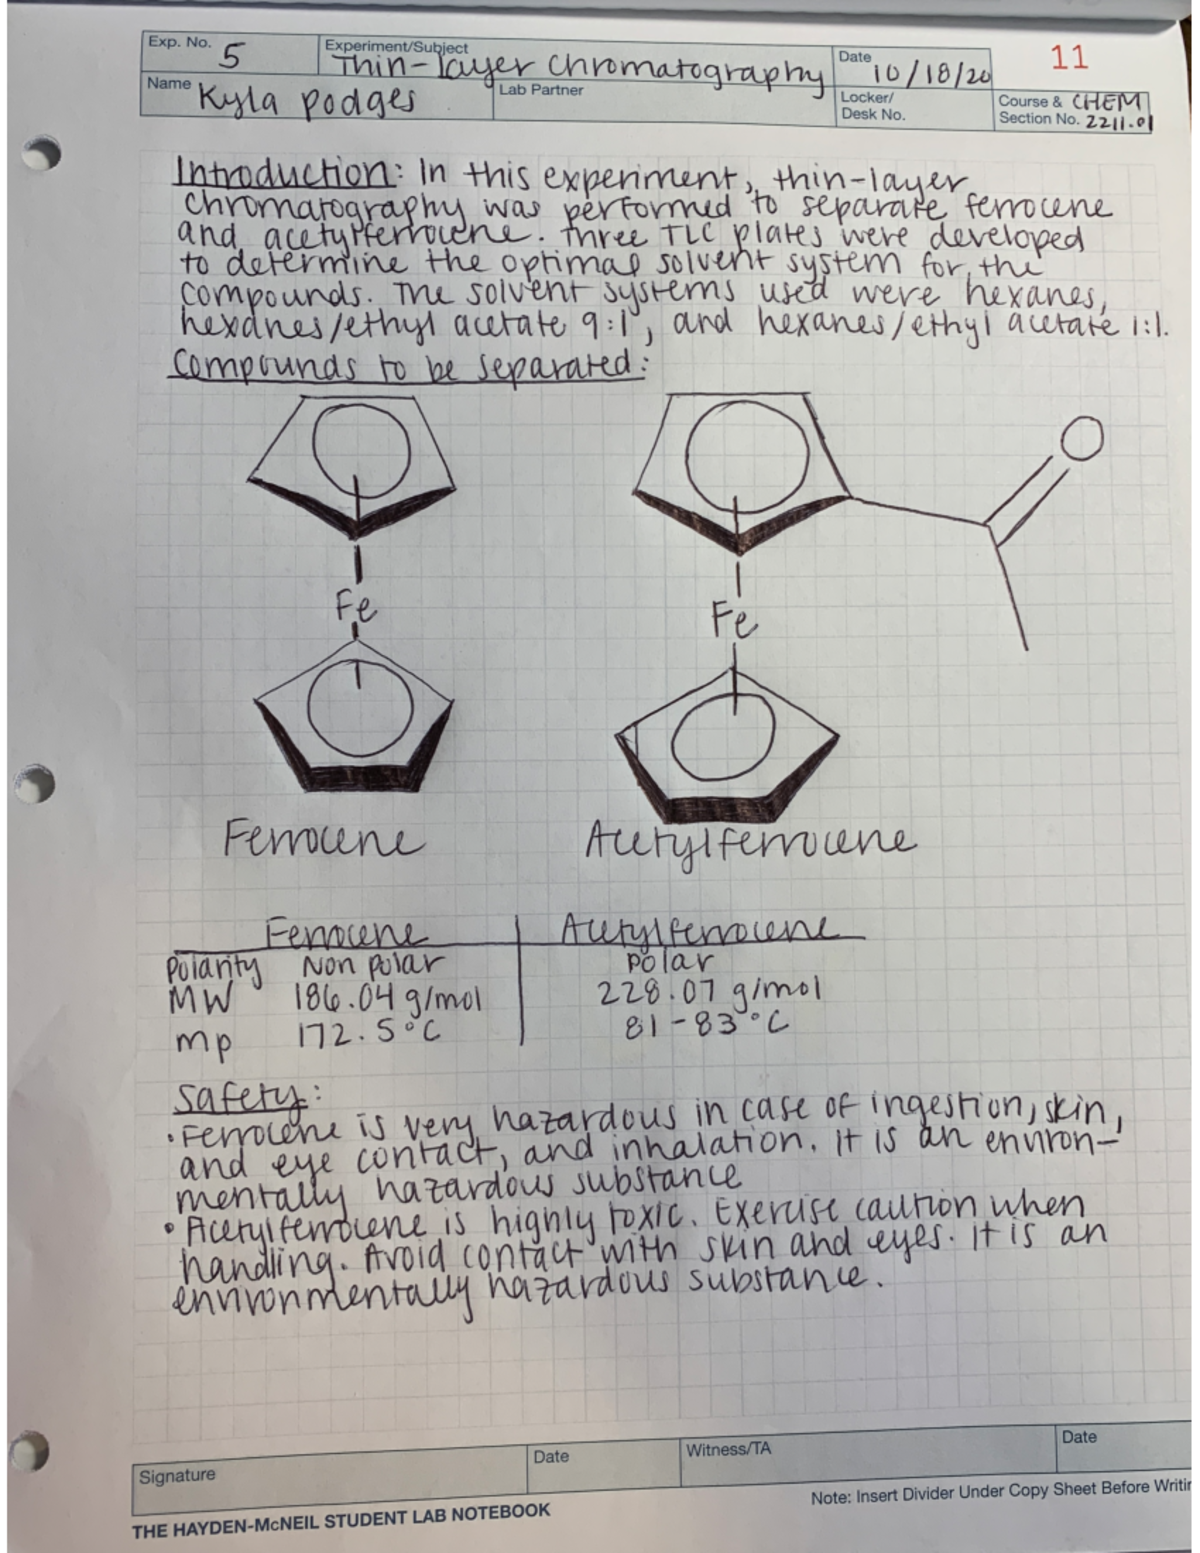 Exp. No. 5
Experiment/Subject Thin-layer chromatography
Date 10/18/20
11
Name Kyla Podges
Lab Partner
Locker/
Desk No.
Course & CHEM
Section No. 2211.01
Introduction: In this experiment, thin-layer
chromatography was performed to separate ferrocene
and acetylferrocene. Three TLC plates were developed
to determine the optimal solvent system for the
compounds. The solvent systems used were hexanes,
hexanes/ethyl acetate 9:1, and hexanes/ethyl acetate 1:1.
Compounds to be separated:
O
Fe
Fe
Ferrocene
Acetylferrocene
Ferrocene Acetylferrocene
Polarity Non polar Polar
MW 186.04 g/mol 228.07 g/mol
mp 172.5°C 81-83°C
Safety:
• Ferrocene is very hazardous in case of ingestion, skin,
and eye contact, and inhalation. It is an environ-
mentally hazardous substance
• Acetylferrocene is highly toxic. Exercise caution when
handling. Avoid contact with skin and eyes. It is an
environmentally hazardous substance.
Signature
Date
Witness/TA
Date
THE HAYDEN-McNEIL STUDENT LAB NOTEBOOK
Note: Insert Divider Under Copy Sheet Before